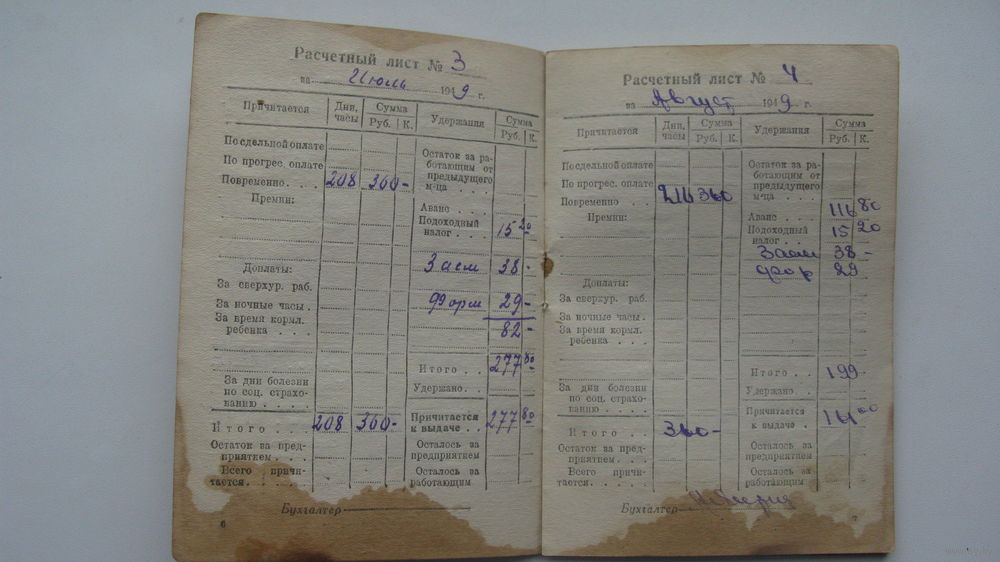 Расчетный лист № 3
за Июль 1949 г.
Причитается Дни, часы Сумма Руб. К. Удержания Сумма Руб. К.
Посдельной оплате
Остаток за ра-
По прогрес. оплате
ботающим от
предыдущего
Повременно . . . 208 360-
м-ца . . . .
Премии:
Аванс . . . .
Подоходный
налог . . . 15 20
Заем 38-
Доплаты:
За сверхур. раб.
За ночные часы . 29-
За время кормл.
ребенка . . . 82-
Итого . . 277 80
За дни болезни
Удержано . .
по соц. страхо-
ванию . . .
Причитается
Итого . . . 208 360- к выдаче . . 277 80
Остаток за пред-
Осталось за
приятием . .
предприятием
Всего причи-
Осталось за
тается . . .
работающим
Бухгалтер
6
Расчетный лист № 4
за Август 1949 г.
Причитается Дни, часы Сумма Руб. К. Удержания Сумма Руб. К.
Посдельной оплате
Остаток за ра-
ботающим от
По прогрес. оплате
предыдущего
Повременно . . 216 360
м-ца . . . .
Премии:
Аванс . . . 116 80
Подоходный
налог . . . 15 20
Заем 38-
29
Доплаты:
За сверхур. раб.
За ночные часы .
За время кормл.
ребенка . . . .
Итого . . 199-
За дни болезни
Удержано . .
по соц. страхо-
ванию . . . .
Причитается
к выдаче . . 161 00
Итого . . . 360-
Остаток за пред-
Осталось за
приятием . .
предприятием
Всего причи-
Осталось за
тается . . .
работающим
Бухгалтер
7